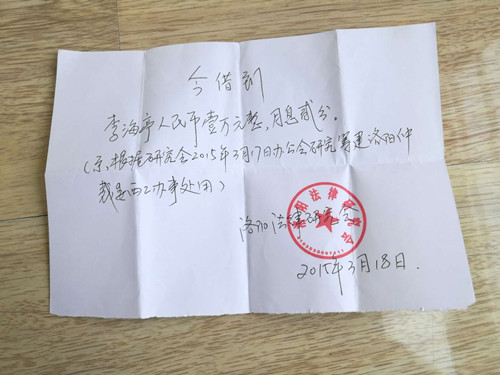 今借到
李海亭人民币壹万元整,月息贰分。
(系根据研究会2015年3月17日办公会研究筹建洛阳仲
裁是西工办事处用)
洛阳法律研究会
洛阳法律研究会
2015年3月18日.